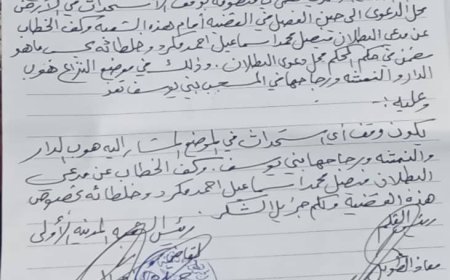 محل الدعوى إلى حين الفصل في القضية أمام هذه الشعبة وكف الخطاب
عن مدعي البطلان فيصل محمد اسماعيل احمد مكرد وخلطائه بحسب ما هو
مضمن في حكم المحكم محل دعوى البطلان . وذلك في موضع النزاع هوب
الدار والنمشه ورجاجها في المسحب بني يوسف
وعليه :-
يكون وقف أي استحداث في الموضع المشار إليه هوب الدار
والنمشه ورجاجها بني يوسف . وكف الخطاب عن مدعي
البطلان فيصل محمد اسماعيل احمد مكرد وخلطائه بخصوص
هذه القضية ولكم جزيل الشكر .
رئيس القلم
رئيس الشعبة المدنية الأولى
القاضي
معاذ